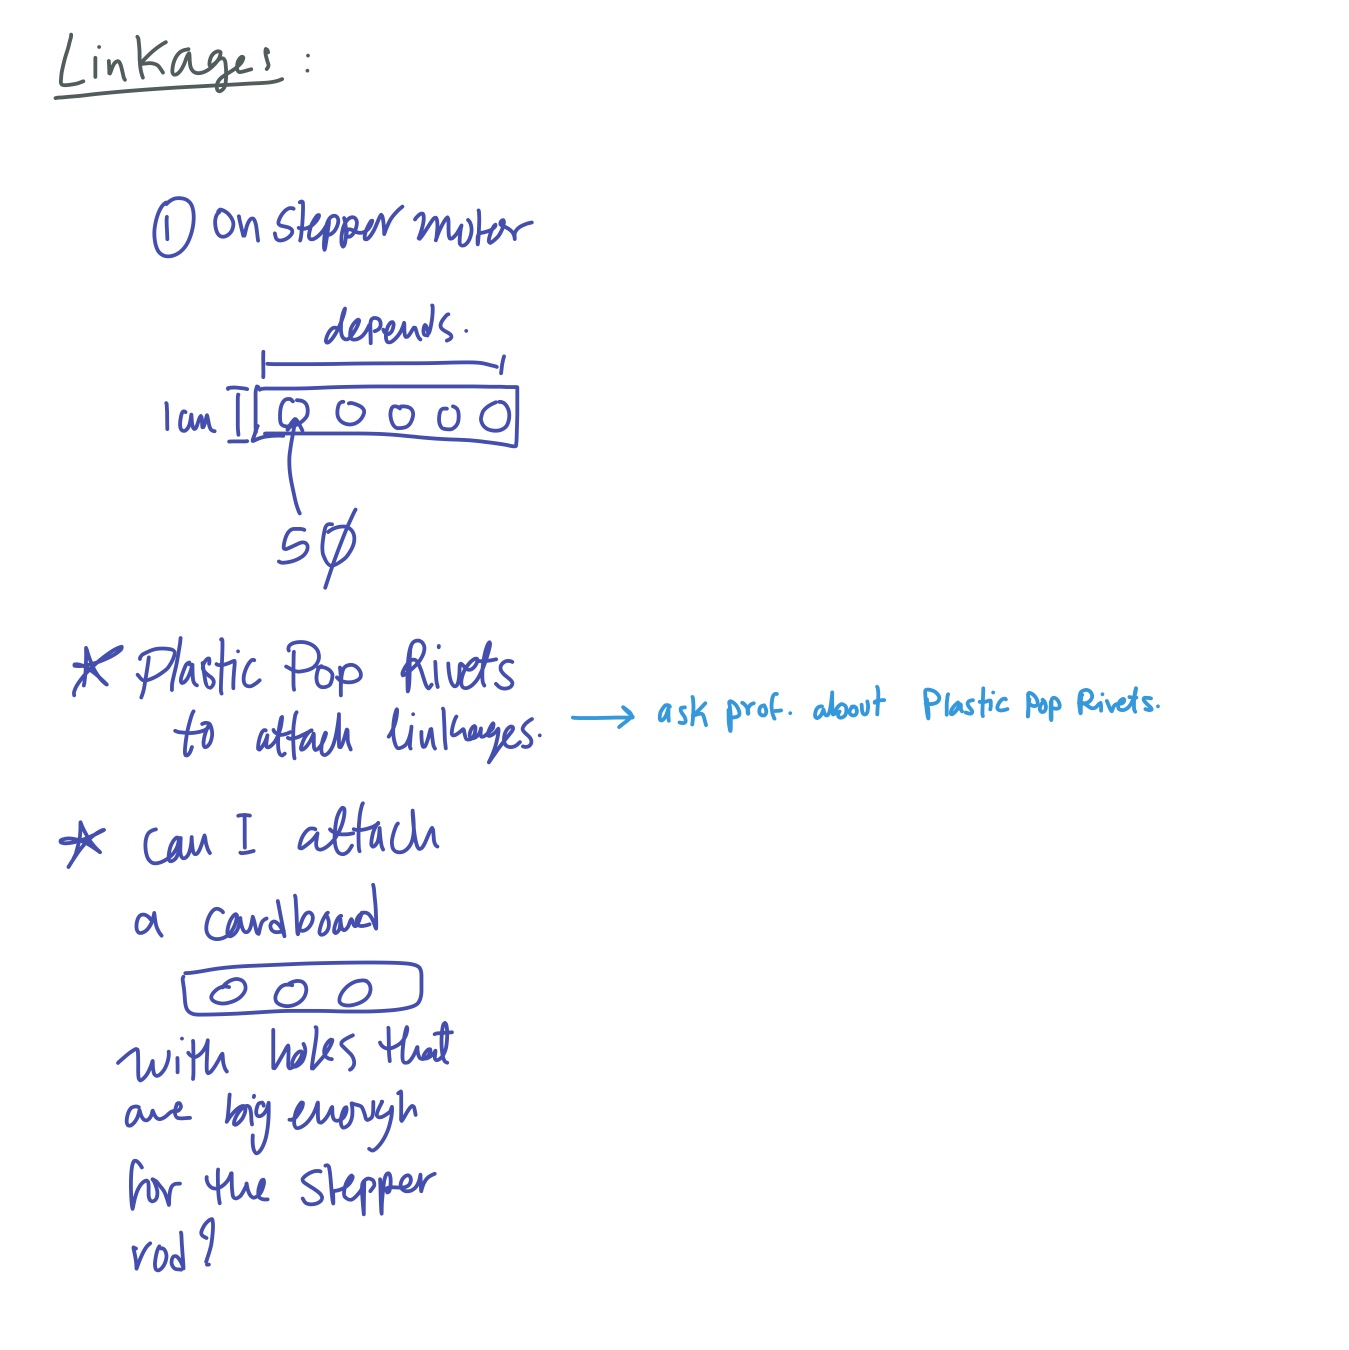 Linkages :
① on stepper motor
depends.
1cm
5ϕ
* Plastic Pop Rivets
to attach linkages.
→ ask prof. about Plastic Pop Rivets.
* can I attach
a cardboard
with holes that
are big enough
for the stepper
rod?